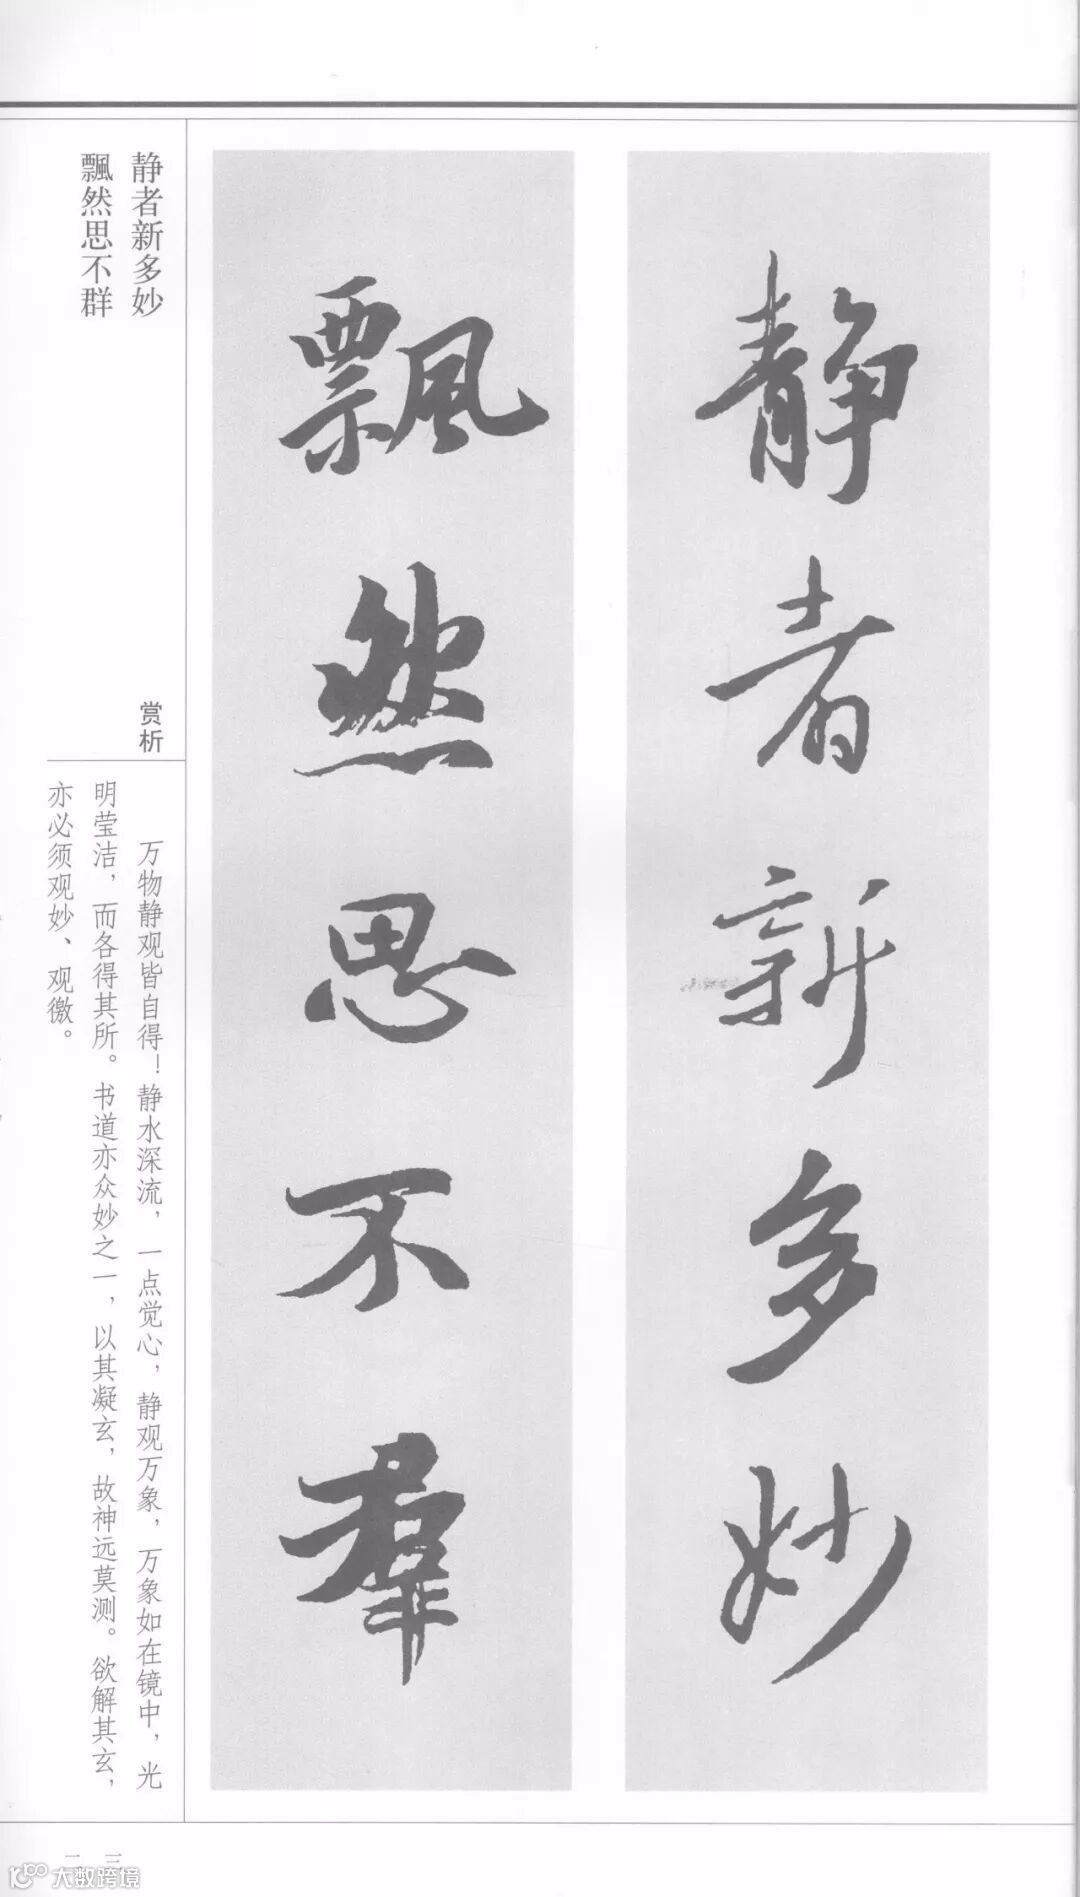 静者新多妙
飘然思不群
静者新多妙
飄然思不羣
赏析
万物静观皆自得！静水深流，一点觉心，静观万象，万象如在镜中，光
明莹洁，而各得其所。书道亦众妙之一，以其凝玄，故神远莫测。欲解其玄，
亦必须观妙、观徼。
大数跨境